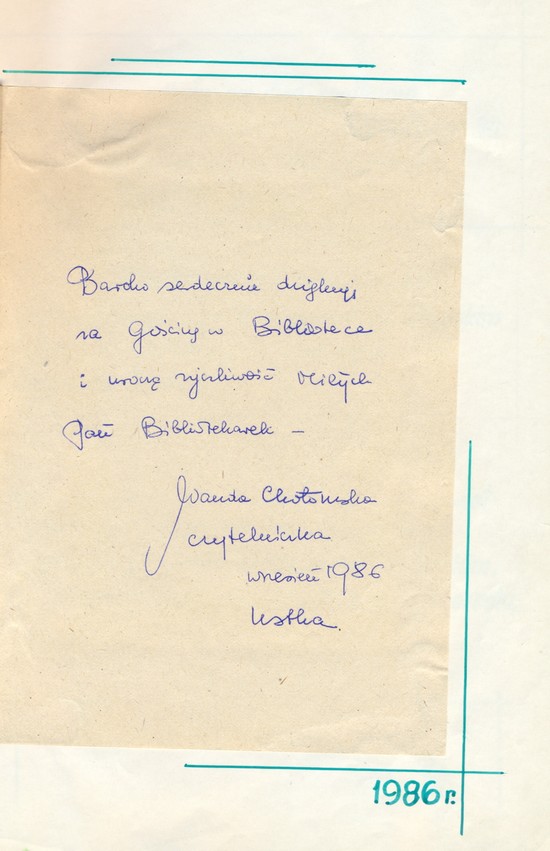 Bardzo serdecznie dziękuję
za Gościnę w Bibliotece
i uroczą życzliwość Miłych
Pań Bibliotekarek –
Wanda Chotomska
czytelniczka
wrzesień 1986
Ustka
1986 r.